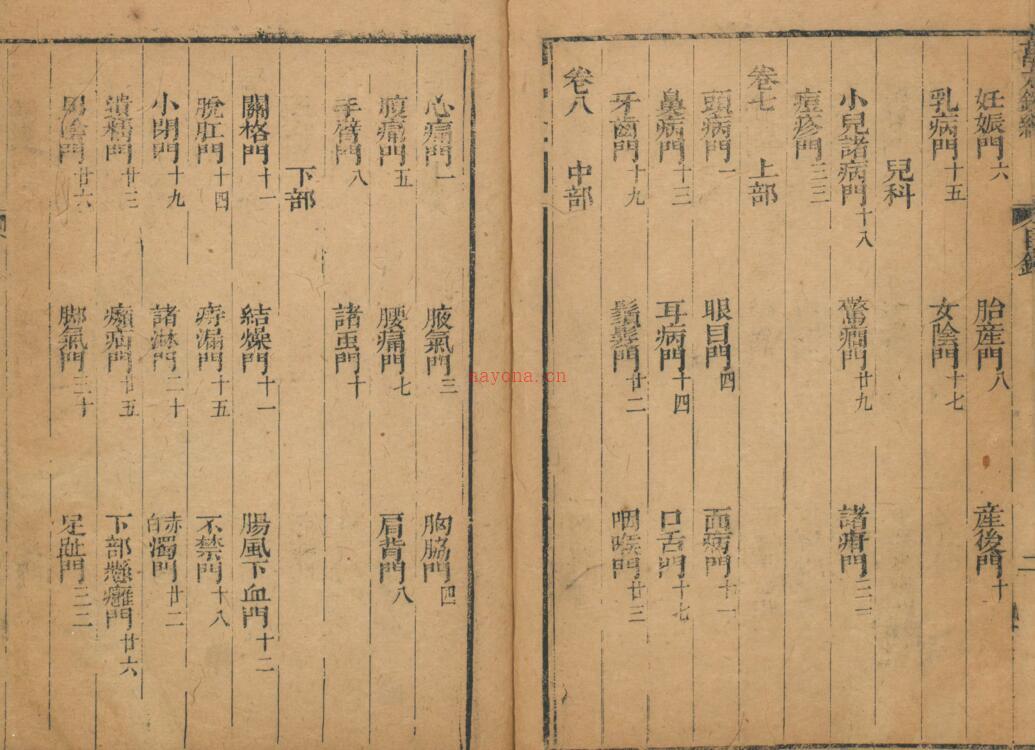 妊娠門六 胎產門八 產後門十
乳病門十五 女陰門十七
兒科
小兒諸病門十八 驚癇門廿九 諸疳門三一
痘疹門三三
卷七 上部
頭病門一 眼目門四 面病門十一
鼻病門十三 耳病門十四 口舌門十七
牙齒門十九 鬚髮門廿二 咽喉門廿三
卷八 中部
心痛門一 腋氣門三 胸脇門四
腹痛門五 腰痛門七 肩背門八
手臂門八 諸虫門十
下部
關格門十一 結燥門十一 腸風下血門十二
脫肛門十四 痔漏門十五 不禁門十八
小閉門十九 諸淋門二十 赤白濁門廿二
遺精門廿三 㿗疝門廿五 下部懸癰門廿六
男陰門廿六 脚氣門三十 足趾門三二
目錄
二
nayona.cn